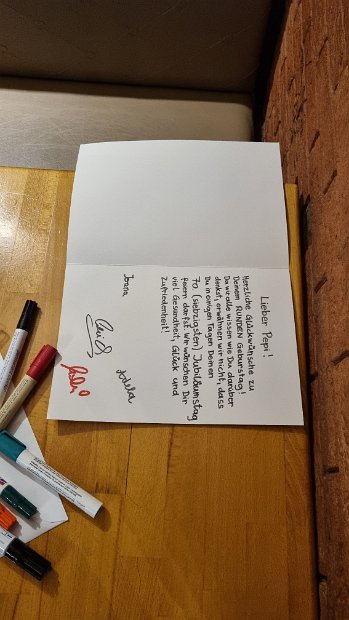 Lieber Pepi!
Herzliche Glückwünsche zu
Deinem RUNDEN Geburtstag!
Da wir alle wissen wie Du darüber
denkst, erwähnen wir nicht, dass
Du in einigen Tagen Deinen
70 (siebzigsten) Jubiläumstag
feiern darfst. Wir wünschen Dir
viel Gesundheit, Glück und
Zufriedenheit!
Joana